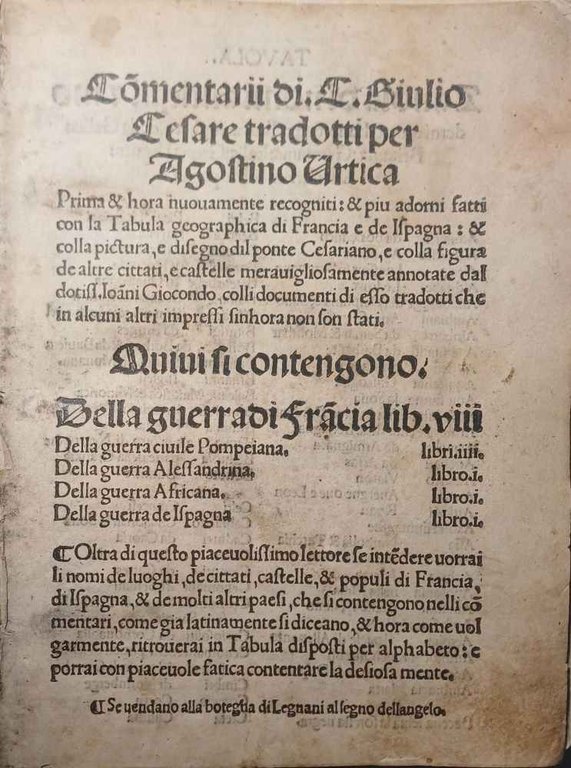 Cõmentarii di. C. Giulio
Cesare tradotti per
Agostino Urtica
Prima & hora nuouamente recogniti: & piu adorni fatti
con la Tabula geographica di Francia e de Iſpagna: &
colla pictura, e diſegno dil ponte Ceſariano, e colla figura
de altre cittati, e caſtelle merauiglioſamente annotate dal
dotiſſ. Ioãni Giocondo, colli documenti di eſſo tradotti che
in alcuni altri impreſſi ſinhora non ſon ſtati.
Quiui ſi contengono.
Della guerra di Frãcia lib. viii
Della guerra ciuile Pompeiana. libri.iiii.
Della guerra Aleſſandrina. libro.i.
Della guerra Africana. libro.i.
Della guerra de Iſpagna libro.i.
¶ Oltra di queſto piaceuoliſſimo lettore ſe intẽdere uorrai
li nomi de luoghi, de cittati, caſtelle, & populi di Francia,
di Iſpagna, & de molti altri paeſi, che ſi contengono nelli cõ
mentari, come gia latinamente ſi diceano, & hora come uol
garmente, ritrouerai in Tabula diſpoſti per alphabeto: e
porrai con piaceuole fatica contentare la deſioſa mente.
¶ Se uendano alla botegha di Legnani al ſegno dellangelo.